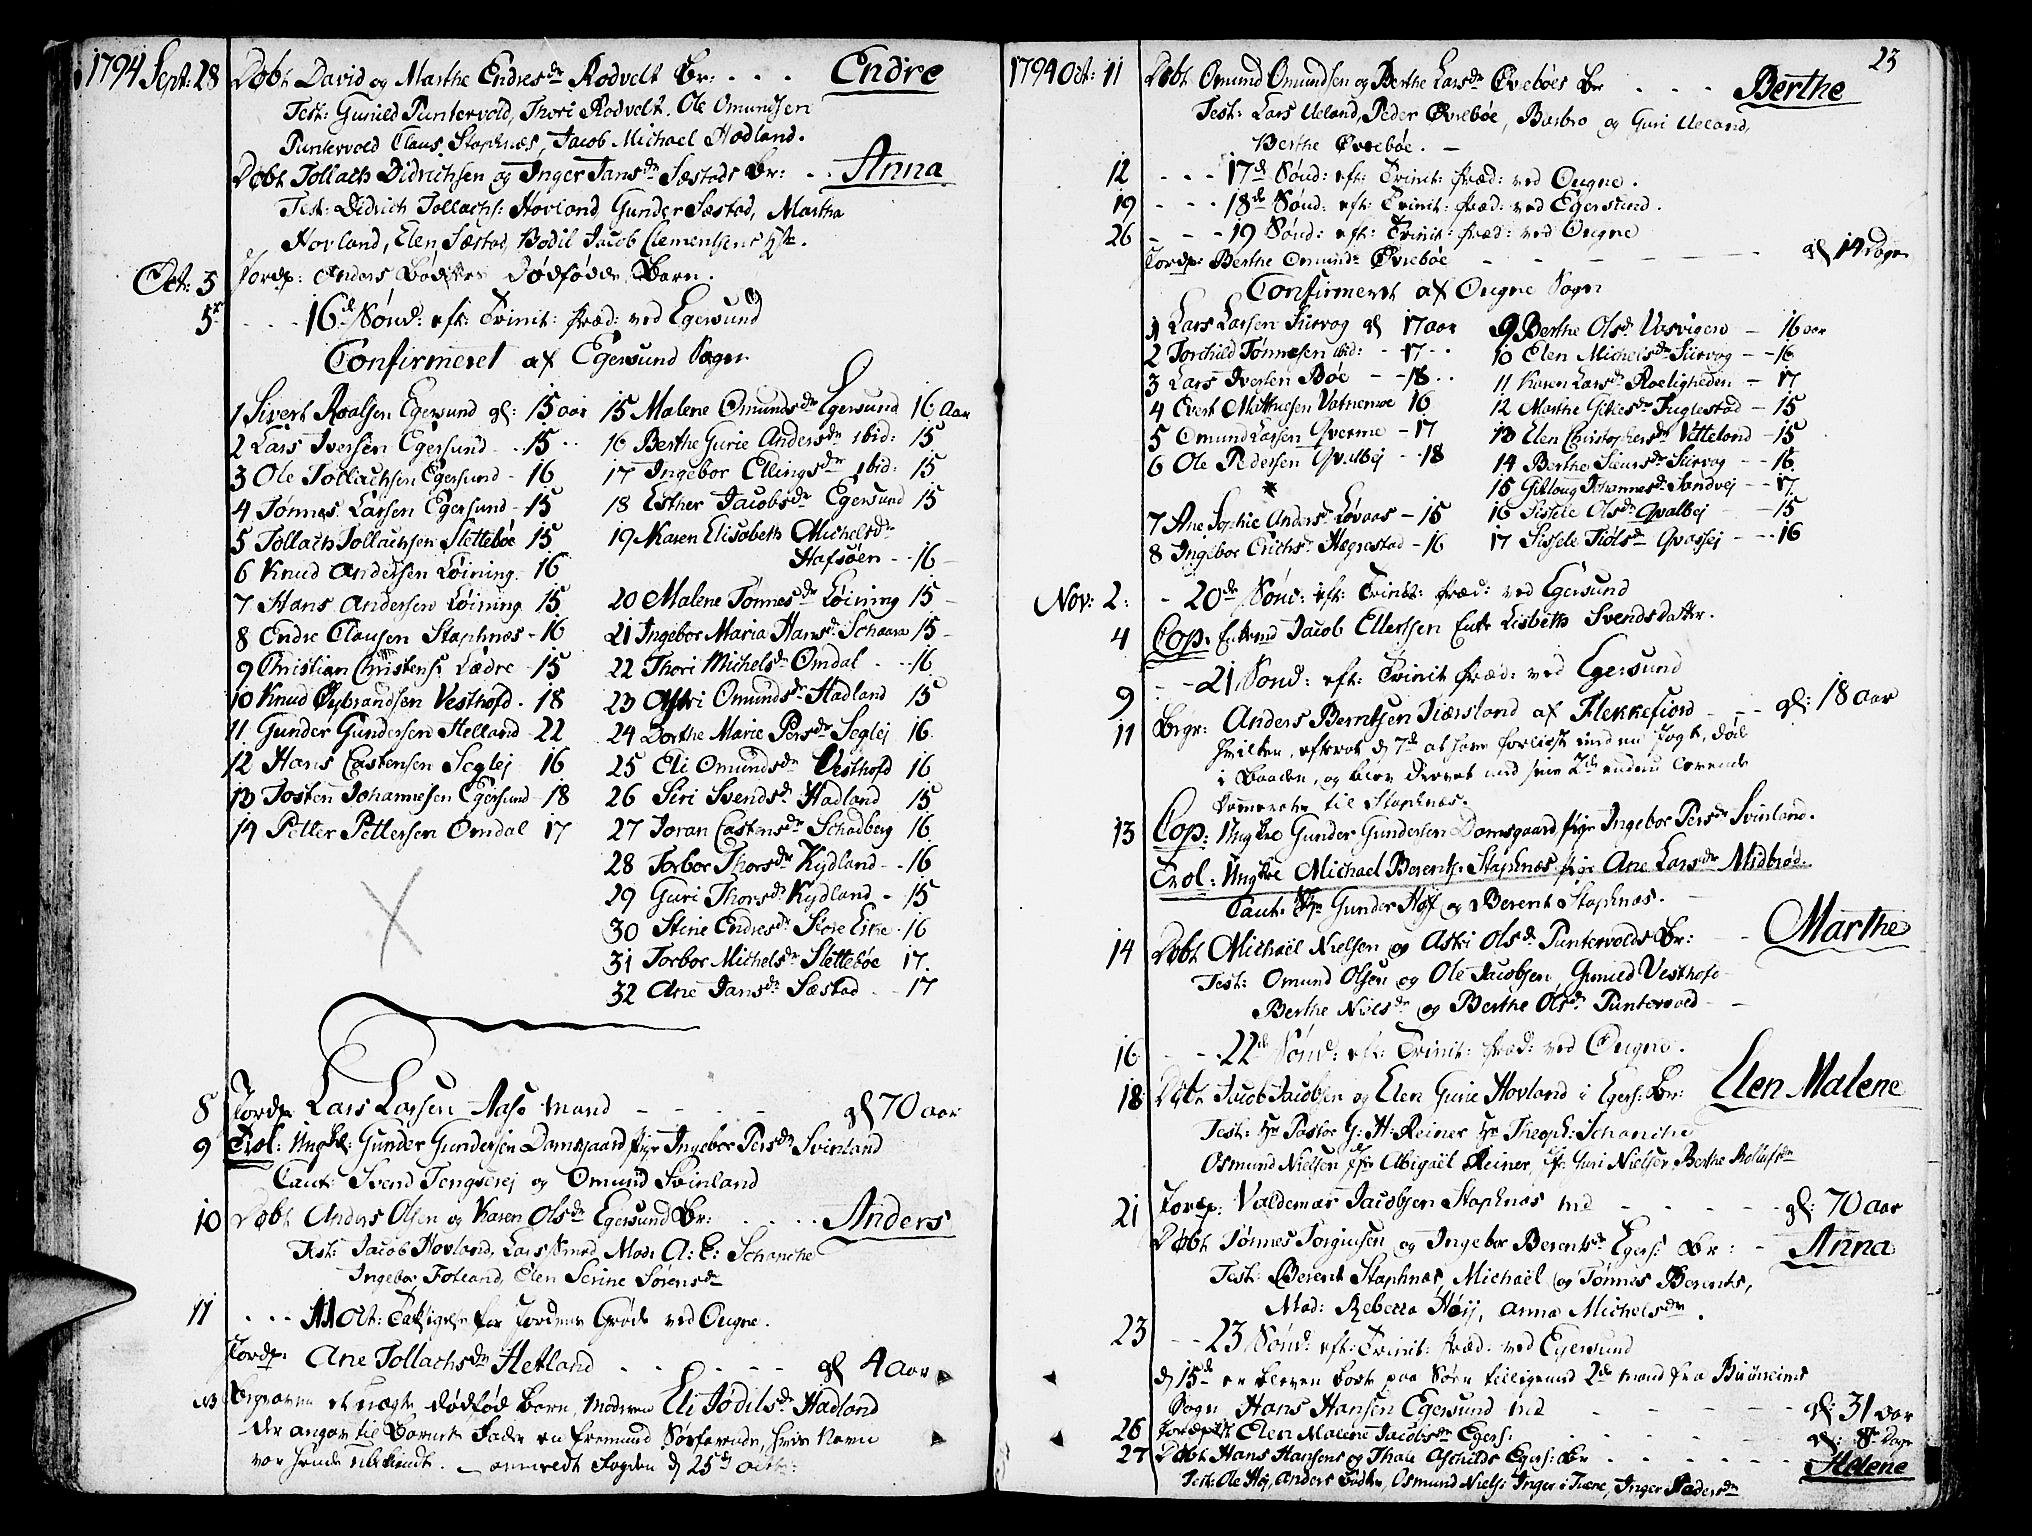 1794 Sept: 28 Døbt David og Marthe Endresdr Rødvelt Br: . . . Endre
Test: Gunild Puntervold, Thori Rødvelt. Ole Omundsen
Puntervold Claus Staphnæs, Jacob Michael Hødland.
Døbt Tollach Didrichsen og Inger Jansdr Sæstads Br: . . Anna
Test: Didrich Tollachs: Hovland, Gunder Sæstad, Martha
Hovland, Elen Sæstad, Bodil Jacob Clementsens
Oct: 3 Jordp: Anders Bødkers Dødfødde Barn.
5te . . . . 16de Sønd: eft: Trinit: præd: ved Egersund
Confirmeret af Egersund Sogn
1 Sivert Roalsen Egersund gl: 15 aar
2 Lars Iversen Egersund . . 15 . .
3 Ole Tollachsen Egersund - 16
4 Tønnes Larsen Egersund - 15
5 Tollach Tollachsen Slettebøe 15
6 Knud Andersen Løining. 16
7 Hans Andersen Løining 15
8 Endre Clausen Staphnæs - 16
9 Christian Christens: Lædre - 15
10 Knud Øybrandsen Vesthofd . 18
11 Gunder Gundersen Helland - 22
12 Hans Castensen Seglej 16
13 Josten Johannesen Egersund - 18
14 Petter Pettersen Omdal 17
15 Malene Omundsdr Egersund 16 aar
16 Berthe Gurie Andersdr ibid: 15
17 Ingebor Ellingsdr ibid: 15
18 Esther Jacobsdr Egersund 15
19 Karen Elisabeth Michelsdr
Hafsøen - - 16 -
20 Malene Tønnesdr Løining 15 -
21 Ingebor Maria Hansdr Schaara 15 -
22 Thori Michelsdr Omdal . - 16
23 Astri Omundsdr Hadland 15
24 Dorthe Marie Persdr Seglej 16.
25 Eli Omundsdr Vesthofd 16
26 Siri Svendsdr Hadland 15
27 Joran Castensdr Schadberg 16
28 Torbor Thorsdr Kydland - - 16
29 Guri Thorsdr Kydland - 15
30 Stine Endresdr Store Eie . 16
31 Torbor Michelsdr Slettebøe 17.
32 Ane Jansdr Sæstad . - 17
8 Jordp: Lars Larsen Aase mand - - - - - gl 70 aar
9 Trol: Ungkl: Gunder Gundersen Damsgaard pige Ingebor Persdr Svinland
Caut: Svend Tengserej og Omund Svinland
10 Døbt Anders Olsen og Karen Olsdr Egersund Br: . . . . Anders
Test: Jacob Hovland, Lars Smed Mad: A: C: Schanche
Ingebor Fotland, Elen Serine Sørensdr
11 . . . 11 Oct: Taksigelse for Jordens Grøde ved Ougne.
Jordp: Ane Tollachsdr Hetland - - - - - gl 4 aar
Begraven et uægte dødfød Barn, Moderen Eli Jødilsdr Hadland
der angav til Barnets Fader en fremmed Søefarende, hvis Navn
var hende ubekiendt. - anmeldt Fogden d 25de octb:

23
1794 Oct: 11 Døbt Omund Omundsen og Berthe Larsdr Øvrebøes Br . . . Berthe
Test: Lars Ueland, Peder Øvrebøe, Barbro og Guri Ueland,
Berthe Øvrebøe. -
12 - - - 17de Sønd: eft: Trinit: præd: ved Ougne.
19 - - - 18de Sønd: eft: Trinit: præd: ved Egersund.
26 - - - 19 Sønd: eft: Trinit: præd: ved Ougne
Jordp: Berthe Omundsdr Øvrebøe - - - - - - gl 14 Dage
Confirmeret af Ougne Sogn
1 Lars Larsen Siirvog gl 17 aar
2 Torchild Tønnesen ibid: - 17 - -
3 Lars Iversen Bøe - - 18 . .
4 Evert Mattiesen Vatnemoe 16
5 Omund Larsen Qverme - 17
6 Ole Pedersen Qvalbej - - 18
7 Ane Sophie Andersdr Løvaas - 15
8 Ingebor Erichsdr Hægrestad - 16
9 Berthe Olsdr Viisvigen - 16 aar
10 Elen Michelsdr Siirvog - - 16
11 Karen Larsdr Roeligheden - 17
12 Marthe Gitlesdr Fuglestad - 15
13 Elen Christophersdr Vetteland - 15
14 Berthe Siursdr Siirvog - - 16
15 Gitloug Johannesdr Sandvej - - 17
16 Sissele Olsdr Qvalbej - 15
17 Sissele Tiølsdr Qvassej - - 16
Nov: 2: - 20de Sønd: eft: Trinit: præd: ved Egersund
4 Cop: Enkemd Jacob Ellertsen Enke Lisbeth Svends datter.
9 - - 21 Sønd: eft: Trinit præd: ved Egersund
11 Begr: Anders Berntsen Tiørsland af Flekkefiord - - - gl: 18 aar
hvilken, efterat d 7de at have forliist med en Jagt, døde
i Baaden, og blev ført med sine 2de endnu levende
Kamerater til Staphnæs.
13 Cop: Ungkl Gunder Gundersen Damsgaard pige Ingebor Persdr Svinland.
Trol: Ungkl Michael Berents: Staphnæs pige Ane Larsdr Midbrød.
Caut: Gunder Høj og Berent Staphnæs. -
14 Døbt Michaël Nielsen og Astri Olsdr Puntervolds Br: - - Marthe
Test: Omund Olsen og Ole Jacobsen, Gunild Vesthofd
Berthe Nielsdr og Berthe Olsdr Puntervold -
16 - - 22de Sønd: eft: Trinit: præd: ved Ougne.
18 Døbt Jacob Jacobsen og Elen Gurie Hovland i Egers: Br: Elen Malene
Test: Hr Pastor G: H: Reiner Hr Theoph: Schanche
Osmund Nielsen Abigaël Reiner, Guri Nielsen Berthe Rolufsdr
21 Jordp: Valdemar Jacobsen Staphnæs md - - - - - gl: 70 aar
Døbt Tønnes Torgiusen og Ingebor Berentsdr Egers: Br: - Anna
Test: Berent Staphnæs, Michaël og Tønnes Berents,
Mad: Rebecca Høij, Anna Michelsdr.
23 - - 23 Sønd: eft: Trinit: præd: ved Egersund
d 15de er bleven bort paa Søen tilligemed 2de mand fra
Sogn Hans Hansen Egersund md - - - - - gl: 31 aar
26 Jordp: Elen Malene Jacobsdr Egers: . . . . gl: 8te Dage
27 Døbt Hans Hansens og Thale Aschilds Egers: Br - - - - Helene
Test: Ole Høj, Anders Bødker, Osmund Niels: Inger i Tuene, Inger Pedersdr